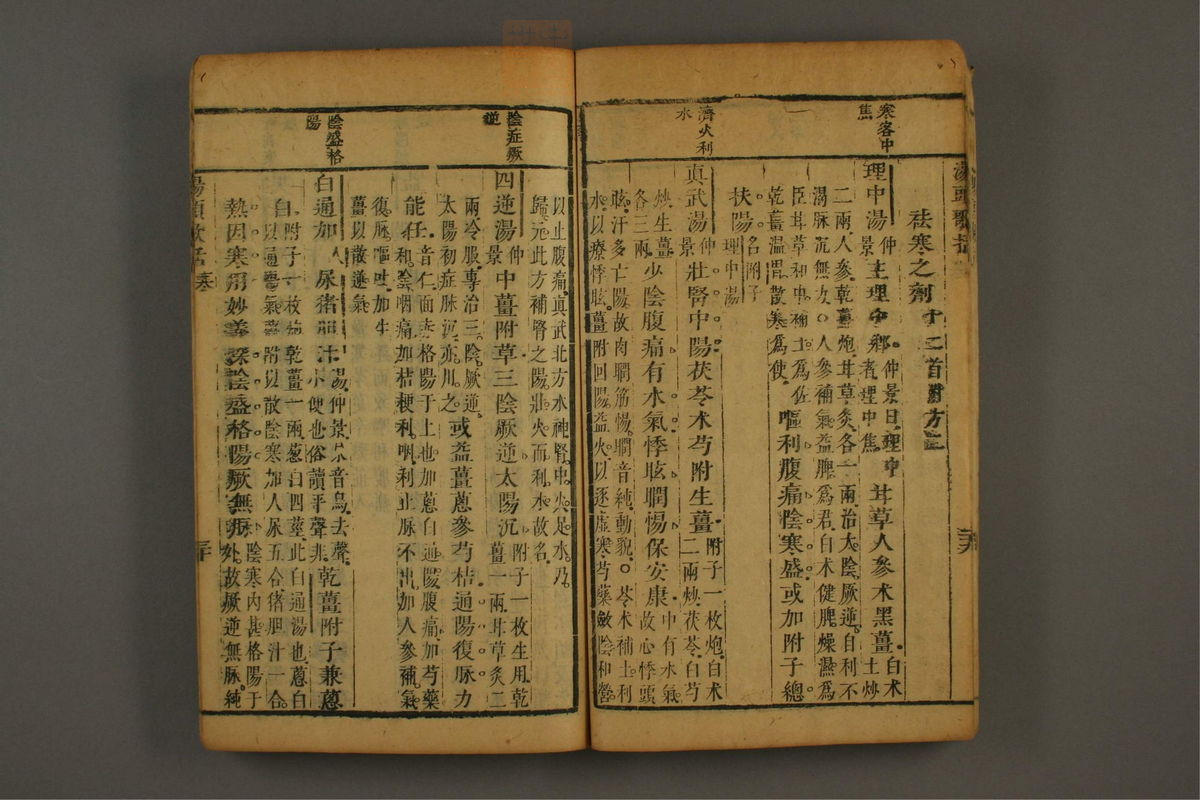 湯頭歌括
祛寒之劑十二首附方二
寒客中焦
理中湯仲景主理中鄉仲景曰理中者理中焦甘草人參术黑薑白术土炒
二兩人參乾薑炮甘草炙各一兩治太陰厥逆自利不
渴脉沉無力○人參補氣益脾爲君白术健脾燥濕爲
臣甘草和中補土爲佐乾薑溫胃散寒爲使嘔利腹痛陰寒盛或加附子總
扶陽名附子理中湯
濟火利水
真武湯仲景壯腎中陽茯苓术芍附生薑附子一枚炮白术二兩炒茯苓白芍
炒生薑各三兩少陰腹痛有水氣悸眩瞤惕保安康中有水氣故心悸頭
眩汗多亡陽故肉瞤筋惕瞤音純動貌○苓术補土利
水以療悸眩薑附回陽益火以逐虛寒芍藥斂陰和營
以止腹痛真武北方水神腎中火足水乃
歸元此方補腎之陽壯火而利水故名
陰症厥逆
四逆湯仲景中薑附草三陰厥逆太陽沉附子一枚生用乾薑一兩甘草炙二
兩冷服專治三陰厥逆太陽初症脉沉亦用之或益薑蔥參芍桔通陽復脉力
能任音仁面赤格陽于上也加蔥白通陽腹痛加芍藥
和陰咽痛加桔梗利咽利止脉不出加人參補氣
復脉嘔吐加生薑以散逆氣
陰盛格陽
白通加人尿猪胆汁湯仲景尿音鳥去聲小便也俗讀平聲非乾薑附子兼蔥
白附子一枚炮乾薑一兩蔥白四莖此白通湯也蔥白
以通陽氣薑附以散陰寒加人尿五合猪胆汁一合
熱因寒用妙義深陰盛格陽厥無脉陰寒内甚格陽于外故厥逆無脉純
湯頭歌括 寒